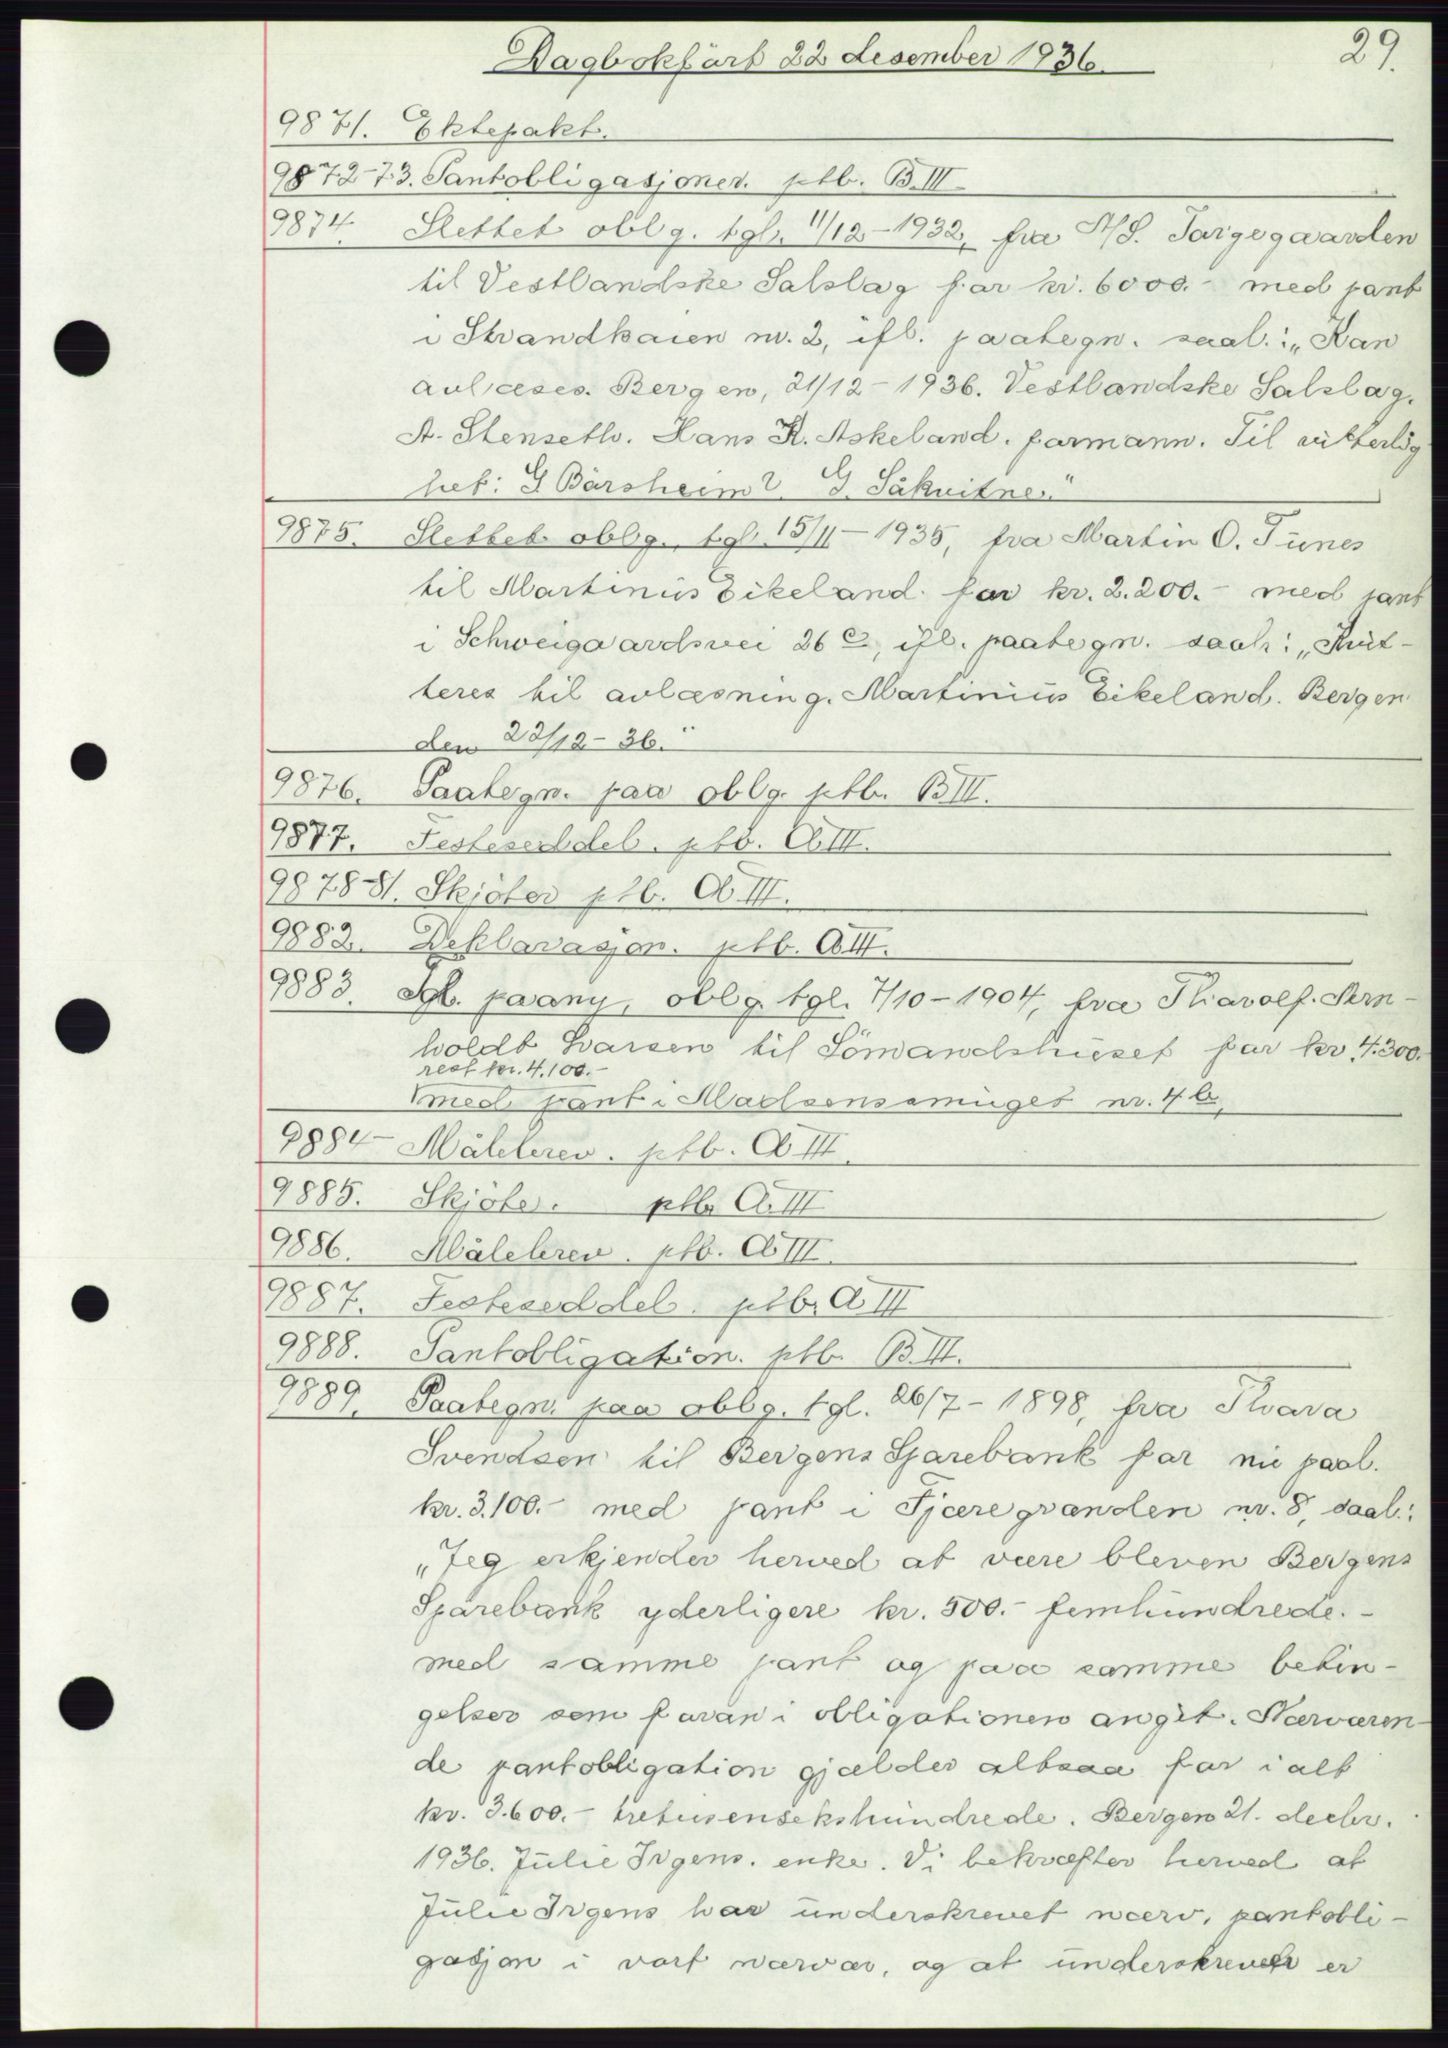 Dagbokført 22 desember 1936.
29.
9871. Ektepakt.
9872-73. Pantobligasjoner. ptb. B.III
9874. Slettet oblg. tgl. 11/12-1932, fra A/S. Torgegaarden
til Vestlandske Salslag for kr. 6000.- med pant
i Strandkaien nr. 2, ifl. paategn. saal.: „Kan
avlæses. Bergen, 21/12-1936. Vestlandske Salslag.
A. Stenseth. Hans K. Askeland. formann. Til vitterlig
het: G Børsheim G. Såkvitne."
9875. Slettet oblg. tgl. 15/11-1935, fra Martin O. Tunes
til Martinius Eikeland for kr. 2.200.- med pant
i Schweigaardsvei 26 c, ifl. paategn. saal.: „Kvit-
teres til avlæsning. Martinius Eikeland. Bergen
den 22/12-36."
9876. Paategn. paa oblg. ptb. B III.
9877. Festeseddel. ptb. A III.
9878-81. Skjøter ptb. A III.
9882. Deklarasjon. ptb. A III.
9883. Tgl. paany, oblg. tgl. 7/10-1904, fra Thorolf Arn-
holdt Larsen til Sømandshuset for kr. 4.300.
rest kr. 4.100.-
med pant i Madsensmuget nr. 4 b,
9884- Målebrev. ptb. A III.
9885. Skjøte. ptb. A. III
9886. Målebrev. ptb. A III.
9887. Festeseddel. ptb. A III
9888. Pantobligation. ptb. B. III.
9889. Paategn. paa oblg. tgl. 26/7-1898, fra Thora
Svendsen til Bergens Sparebank for nu paal.
kr. 3.100.- med pant i Fjæregranden nr. 8, saal.:
„Jeg erkjender herved at være bleven Bergens
Sparebank yderligere kr. 500.- femhundrede.-
med samme pant og paa samme betin-
gelser som foran i obligationen angit. Nærværen-
de pantobligation gjælder altsaa for i alt
kr. 3.600.- tretusensekshundrede. Bergen 21. decbr.
1936. Julie Irgens. enke. Vi bekræfter herved at
Julie Irgens har underskrevet nærv. pantobli-
gasjon i vort nærvær, og at underskriver er